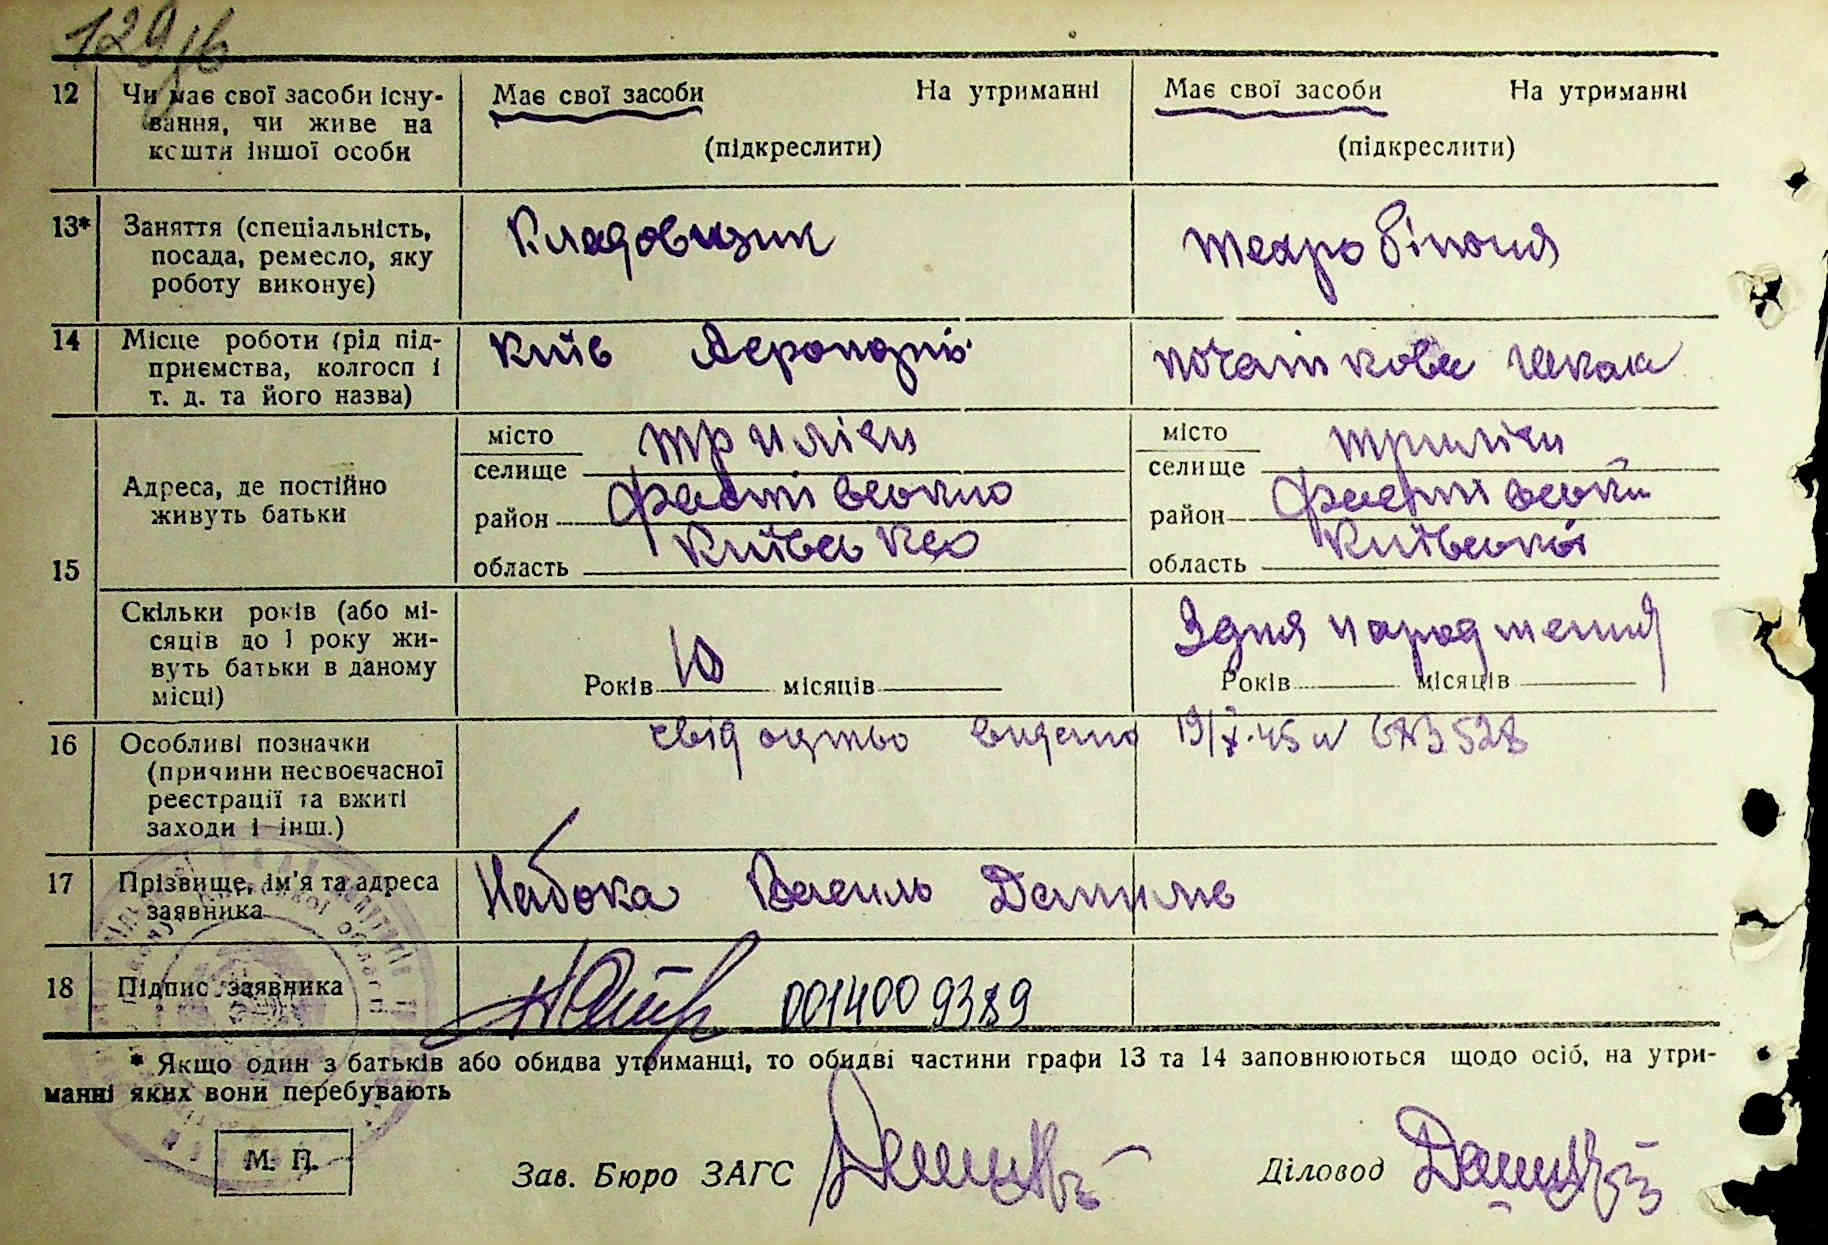 129/6
12 Чи має свої засоби існу- Має свої засоби На утриманні Має свої засоби На утриманні
вання, чи живе на
кошти іншої особи (підкреслити) (підкреслити)
13* Заняття (спеціальність, Кладовщик техробітниця
посада, ремесло, яку
роботу виконує)
14 Місце роботи (рід під- Київ Аеропорт початкова школа
приємства, колгосп і
т. д. та його назва)
15 Адреса, де постійно живуть батьки
місто Триліси місто Триліси
селище селище
район Фастівського район Фастівськ
область Київська область Київської
Скільки років (або мі- З дня народження
сяців до 1 року жи-
вуть батьки в даному Років 10 місяців Років місяців
місці)
16 Особливі позначки свідоцтво видано 19/X-45
(причини несвоєчасної
реєстрації та вжиті
заходи і інш.)
17 Прізвище, ім'я та адреса Набока Василь Данилів
заявника
18 Підпис заявника 0014009389
* Якщо один з батьків або обидва утриманці, то обидві частини графи 13 та 14 заповнюються щодо осіб, на утри-
манні яких вони перебувають
М. П. Зав. Бюро ЗАГС Діловод